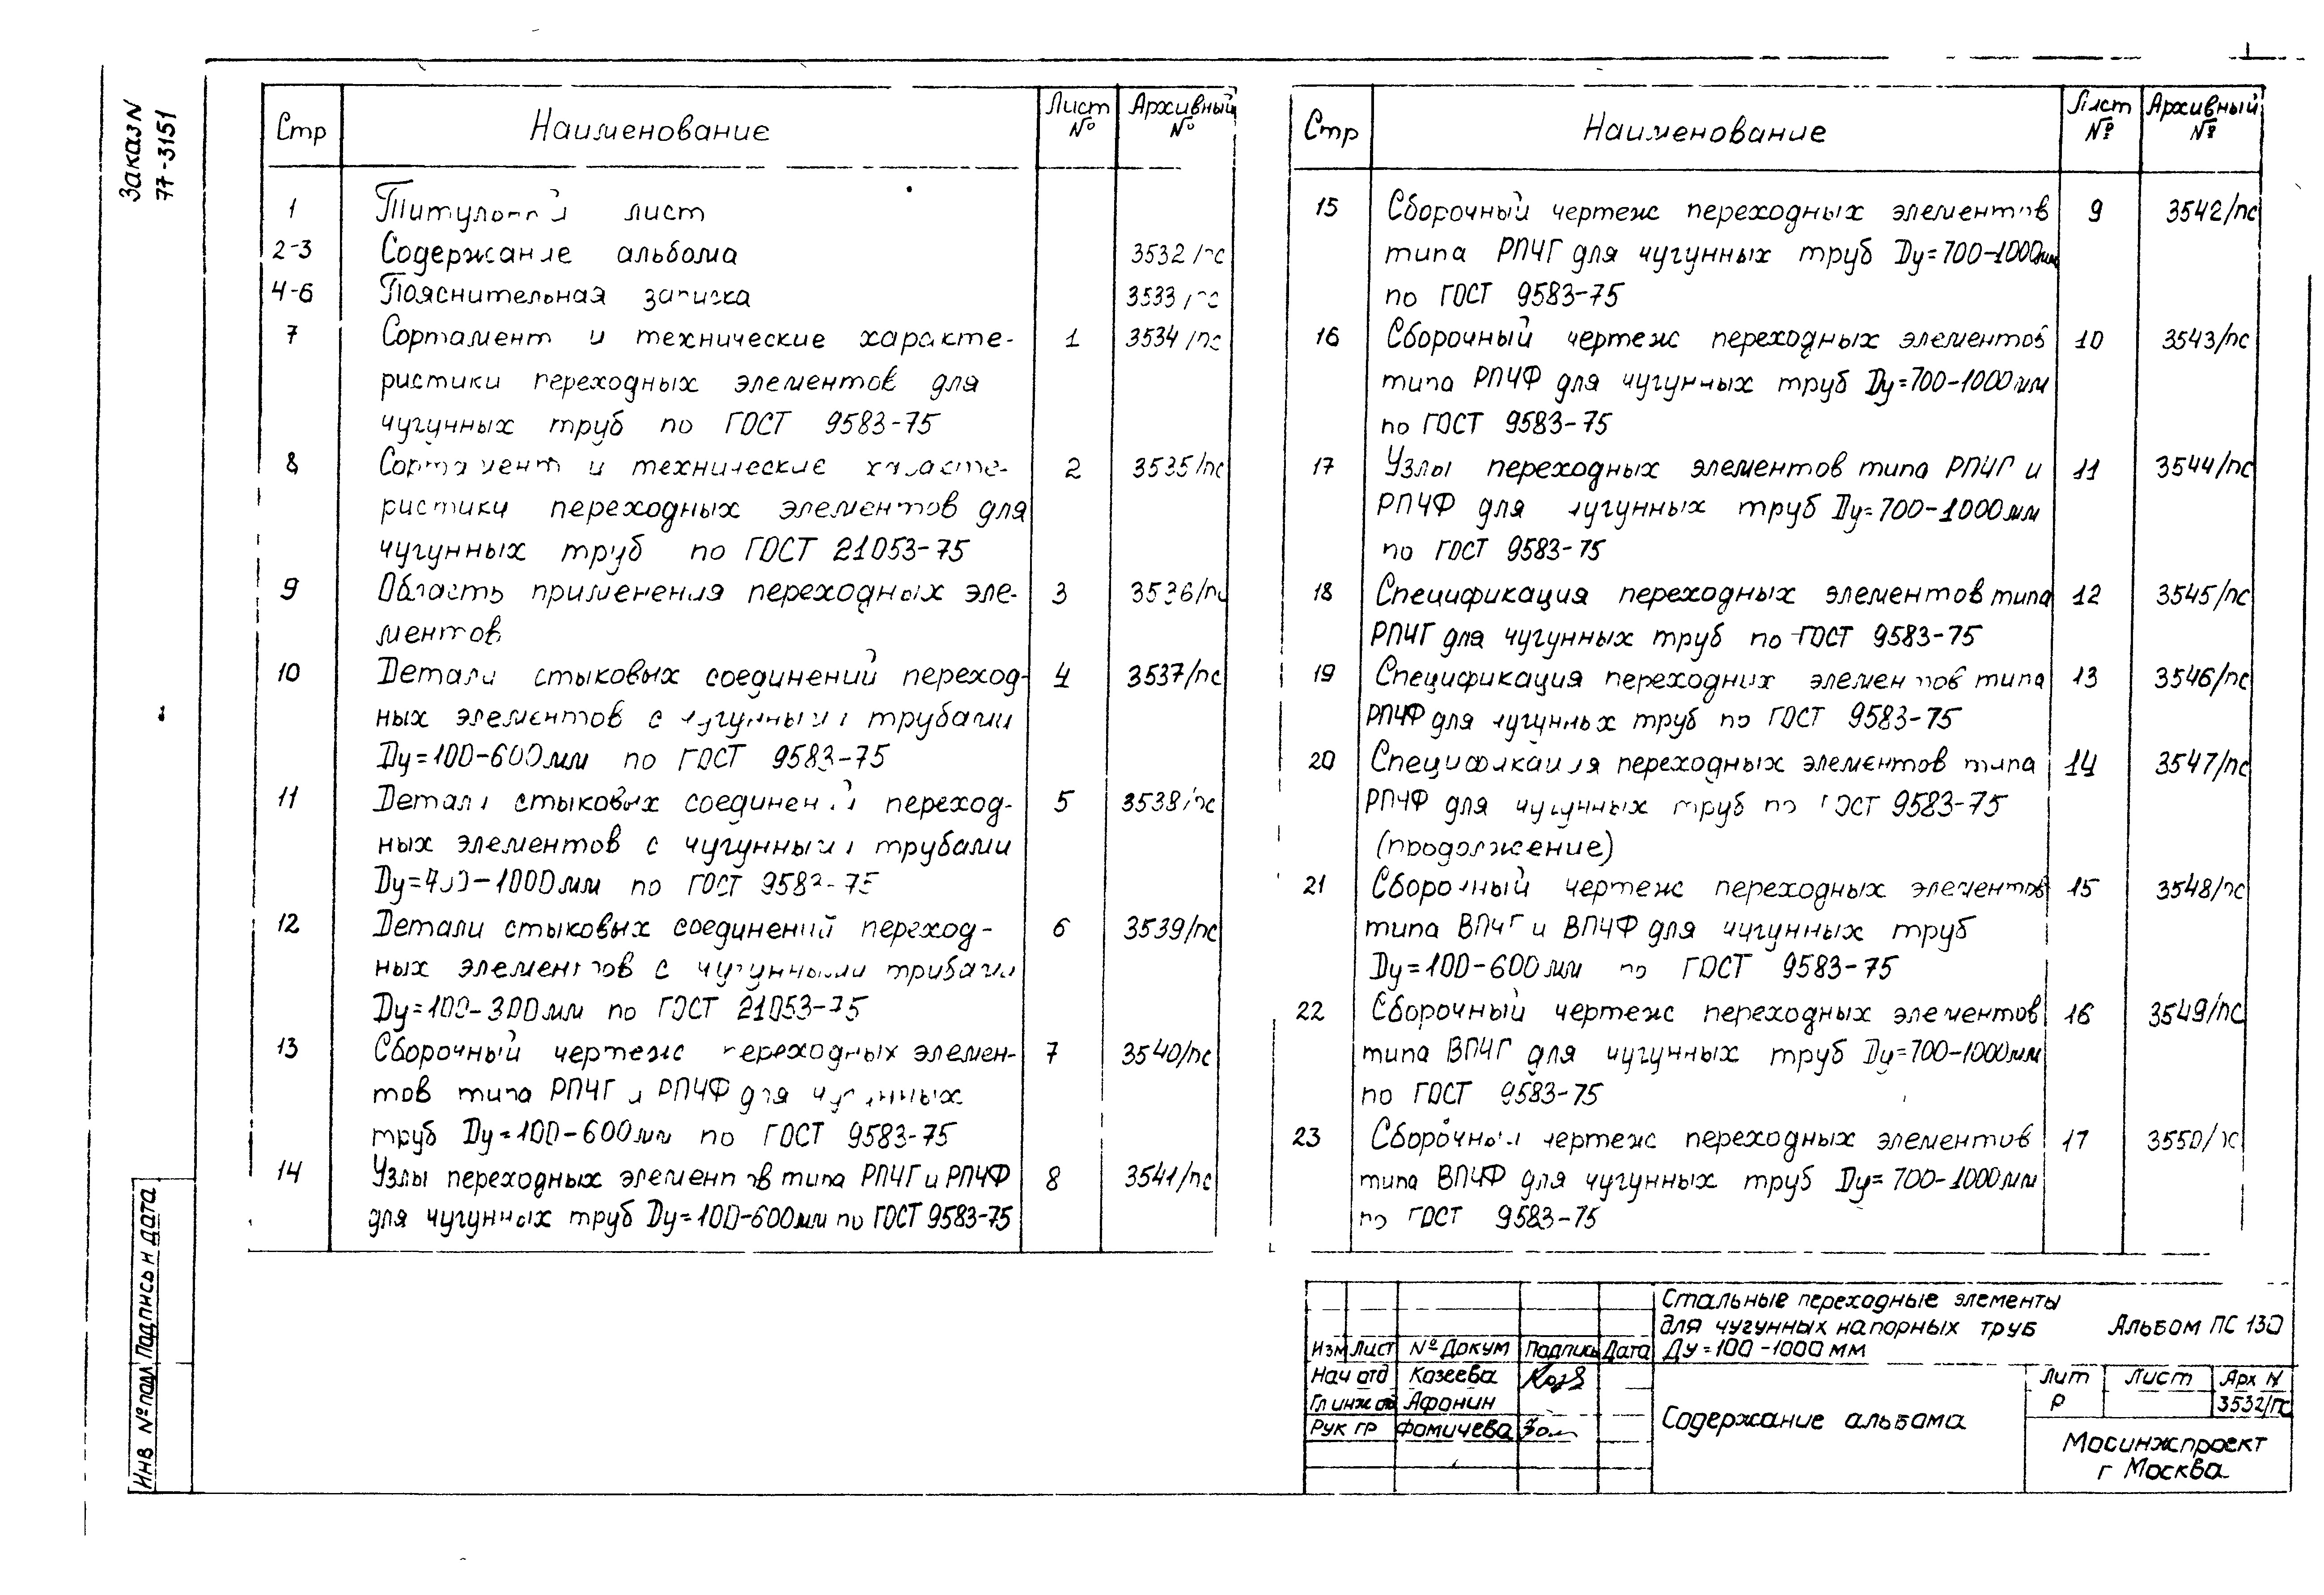 Заказ N
77-3151
Стр Наименование Лист № Архивный №
1 Титульный лист
2-3 Содержание альбома 3532/пс
4-6 Пояснительная записка 3533/пс
7 Сортамент и технические характе- 1 3534/пс
ристики переходных элементов для
чугунных труб по ГОСТ 9583-75
8 Сортамент и технические характе- 2 3535/пс
ристики переходных элементов для
чугунных труб по ГОСТ 21053-75
9 Область применения переходных эле- 3 3536/пс
ментов
10 Детали стыковых соединений переход- 4 3537/пс
ных элементов с чугунными трубами
Dу=100-600мм по ГОСТ 9583-75
11 Детали стыковых соединений переход- 5 3538/пс
ных элементов с чугунными трубами
Dу=700-1000мм по ГОСТ 9583-75
12 Детали стыковых соединений переход- 6 3539/пс
ных элементов с чугунными трубами
Dу=100-300мм по ГОСТ 21053-75
13 Сборочный чертеж переходных элемен- 7 3540/пс
тов типа РПЧГ и РПЧФ для чугунных
труб Dу=100-600мм по ГОСТ 9583-75
14 Узлы переходных элементов типа РПЧГ и РПЧФ 8 3541/пс
для чугунных труб Dу=100-600мм по ГОСТ 9583-75
Стр Наименование Лист № Архивный №
15 Сборочный чертеж переходных элементов 9 3542/пс
типа РПЧГ для чугунных труб Dу=700-1000мм
по ГОСТ 9583-75
16 Сборочный чертеж переходных элементов 10 3543/пс
типа РПЧФ для чугунных труб Dу=700-1000мм
по ГОСТ 9583-75
17 Узлы переходных элементов типа РПЧГ и 11 3544/пс
РПЧФ для чугунных труб Dу=700-1000мм
по ГОСТ 9583-75
18 Спецификация переходных элементов типа 12 3545/пс
РПЧГ для чугунных труб по ГОСТ 9583-75
19 Спецификация переходних элементов типа 13 3546/пс
РПЧФ для чугунных труб по ГОСТ 9583-75
20 Спецификация переходных элементов типа 14 3547/пс
РПЧФ для чугунных труб по ГОСТ 9583-75
(продолжение)
21 Сборочный чертеж переходных элементов 15 3548/пс
типа ВПЧГ и ВПЧФ для чугунных труб
Dу=100-600мм по ГОСТ 9583-75
22 Сборочный чертеж переходных элементов 16 3549/пс
типа ВПЧГ для чугунных труб Dу=700-1000мм
по ГОСТ 9583-75
23 Сборочный чертеж переходных элементов 17 3550/пс
типа ВПЧФ для чугунных труб Dу=700-1000мм
по ГОСТ 9583-75
Инв № подл Подпись и дата
Стальные переходные элементы
для чугунных напорных труб
Ду=100-1000 мм
Альбом ПС 130
Изм Лист № Докум Подпись Дата
Нач отд Козеева
Гл инж от Афонин
Рук гр Фомичева
Содержание альбома
Лит Лист Арх N
Р 3532/пс
Мосинжпроект
г Москва